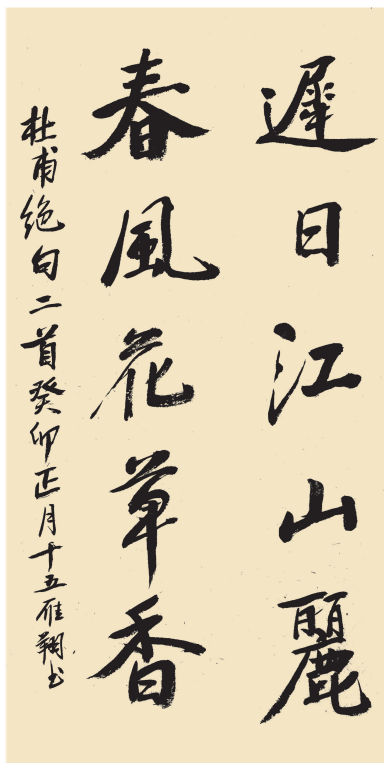 遲日江山麗
春風花草香
杜甫绝句二首癸卯正月十五雁翔书